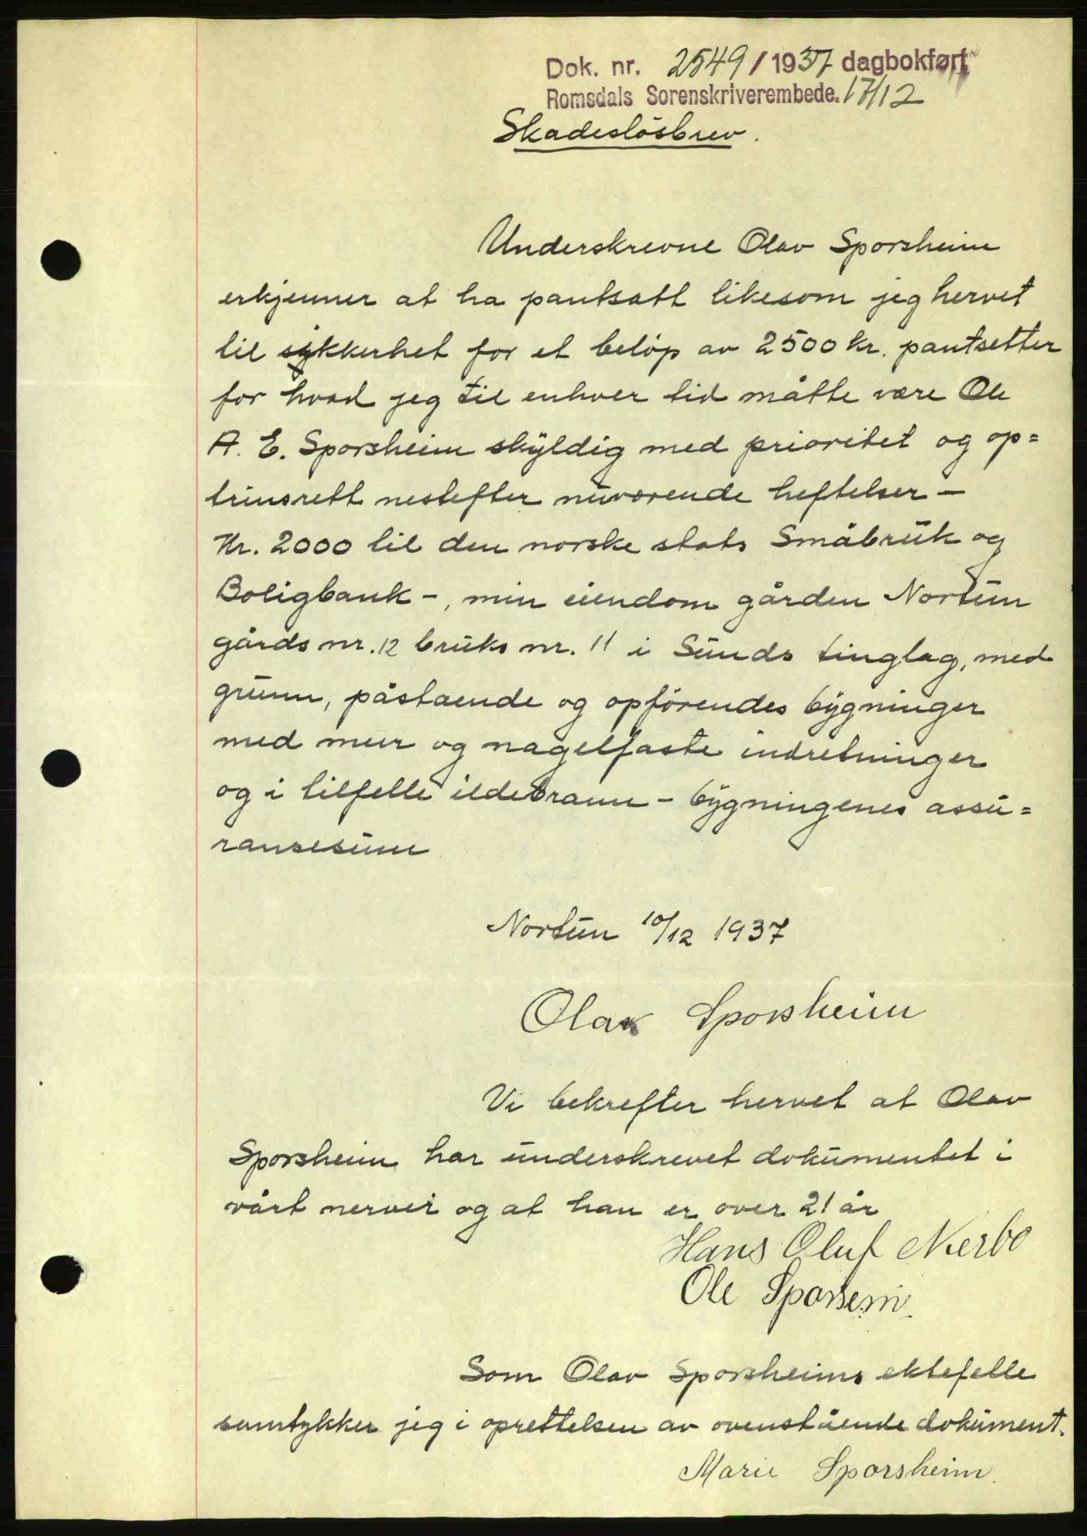 Dok. nr. 2549 / 1937 dagbokført
Romsdals Sorenskriverembede. 17/12
Skadesløsbrev.
Underskrevne Olav Sporsheim
erkjenner at ha pantsatt likesom jeg hervet
til sykkerhet for et beløp av 2500 kr. pantsetter
for hvad jeg til enhver tid måtte være Ole
A. E. Sporsheim skyldig med prioritet og op=
trinsrett nestefter nuværende heftelser –
Kr. 2000 til den norske stats Småbruk og
Boligbank –, min eiendom gården Nortun
gårds nr. 12 bruks nr. 11 i Sunds tinglag, med
grunn, påstaende og opførendes bygninger
med mur og nagelfaste indretninger
og i tilfelle ildebrann – bygningenes assu=
ransesum
Nortun 10/12 1937
Olav Sporsheim
Vi bekrefter hervet at Olav
Sporsheim har underskrevet dokumentet i
vårt nervei og at han er over 21 år
Hans Oluf Nerbø
Ole Sporsem.
Som Olav Sporsheims ektefelle
samtykker jeg i oprettelsen av ovenstående dokument.
Marie Sporsheim.